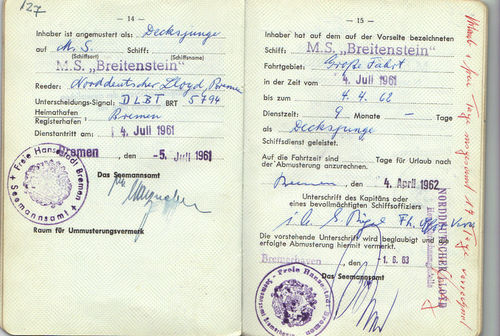 127
— 14 —
Inhaber ist angemustert als: Decksjunge
auf M.S. Schiff:
(Schiffsart) (Schiffsname)
M.S. „Breitenstein"
Reeder: Norddeutscher Lloyd, Bremen
Unterscheidungs-Signal: DLBT BRT 5794
Heimathafen
Registerhafen: Bremen
Dienstantritt am: 4. Juli 1961
Bremen, den -5. Juli 1961
Das Seemannsamt
Freie Hansestadt Bremen
Seemannsamt
Raum für Ummusterungsvermerk
— 15 —
Inhaber hat auf dem auf der Vorseite bezeichneten
Schiff: M.S. „Breitenstein"
Fahrtgebiet: Große Fahrt
in der Zeit vom 4. Juli 1961
bis zum 4. 4. 62
Dienstzeit: 9 Monate — Tage
als Decksjunge
Schiffsdienst geleistet.
Auf die Fahrtzeit sind Tage für Urlaub nach
der Abmusterung anzurechnen.
Bremen, den 4. April 1962
Unterschrift des Kapitäns oder
eines bevollmächtigten Schiffsoffiziers
i.A.
NORDDEUTSCHER LLOYD
Die vorstehende Unterschrift wird beglaubigt und die
erfolgte Abmusterung hiermit vermerkt.
Bremerhaven, den -1. 6. 63
Das Seemannsamt
Freie Hansestadt Bremen